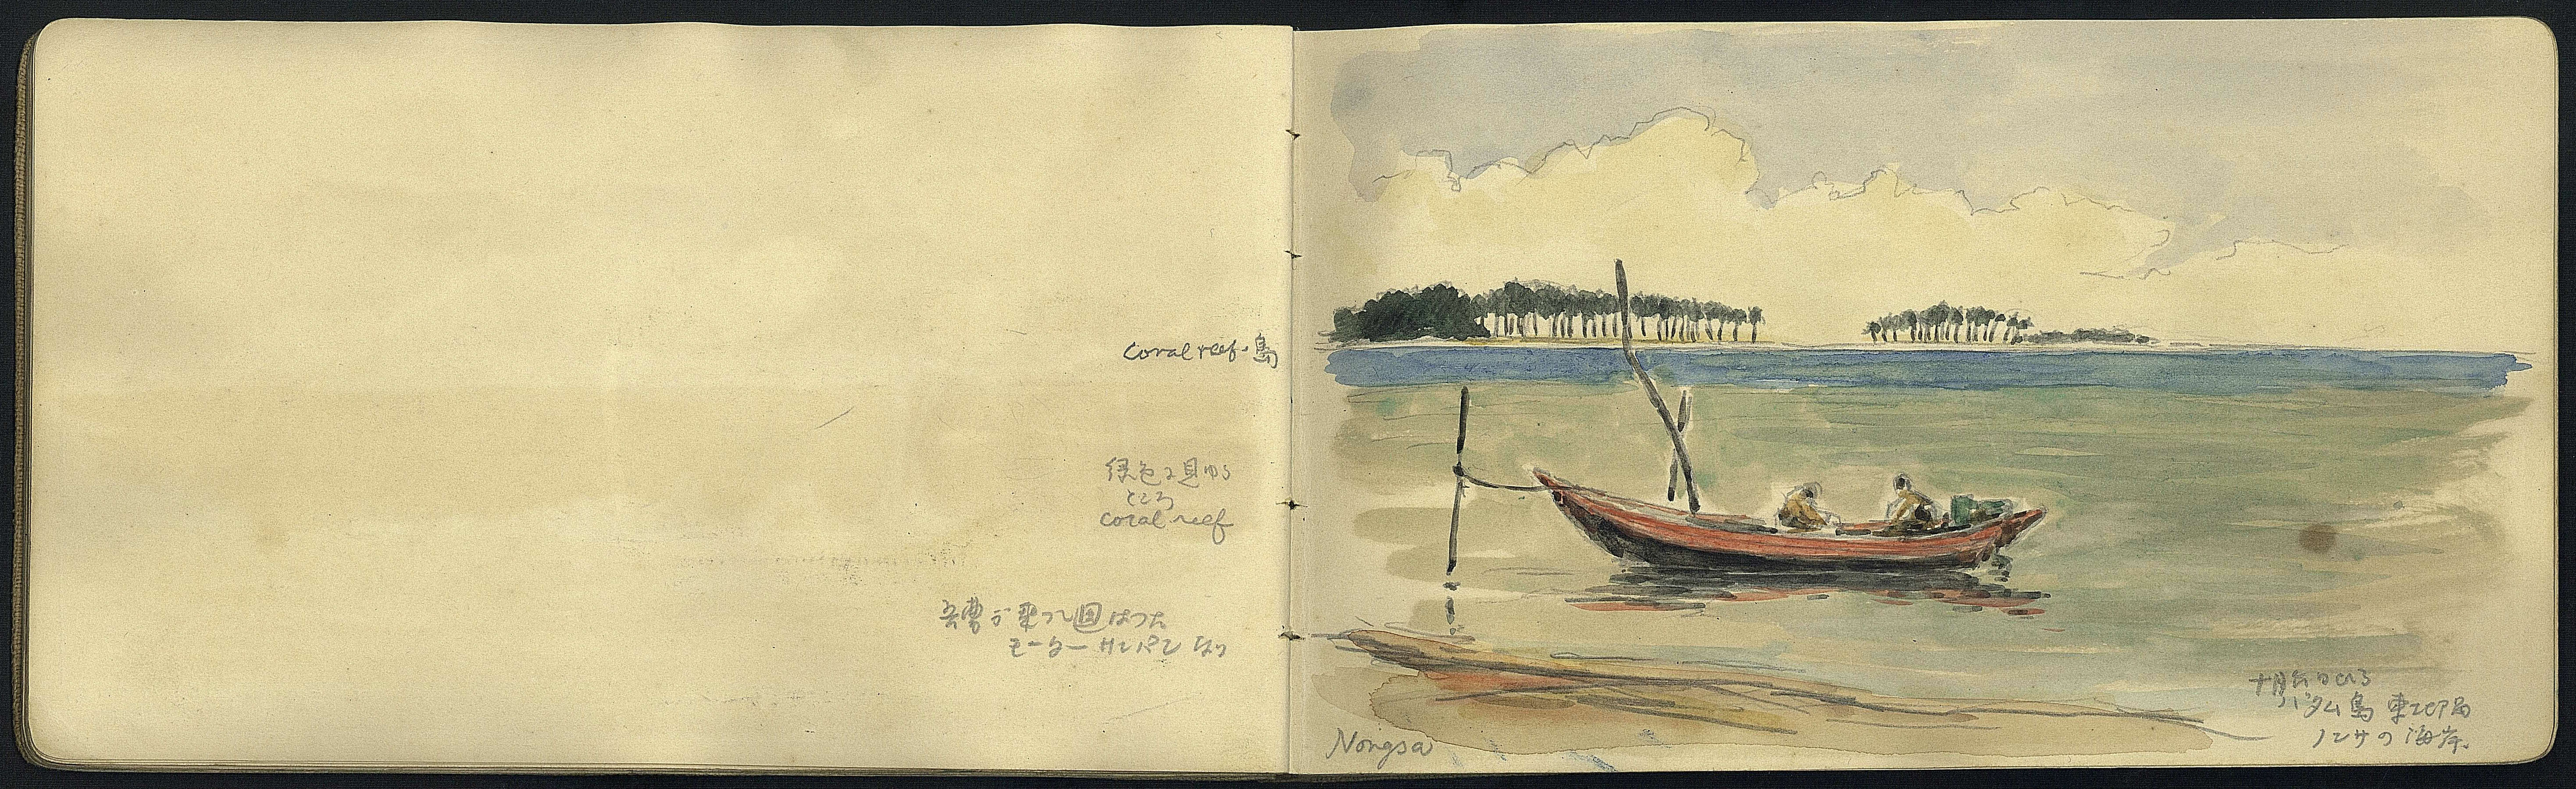 coral reef・島
緑色に見ゆる
ところ
coral reef
吾曹が乗つて廻はつた
モーターサンパンなり
Nongsa
十月五日ひる
バタム島 東北部
ノンサの海岸